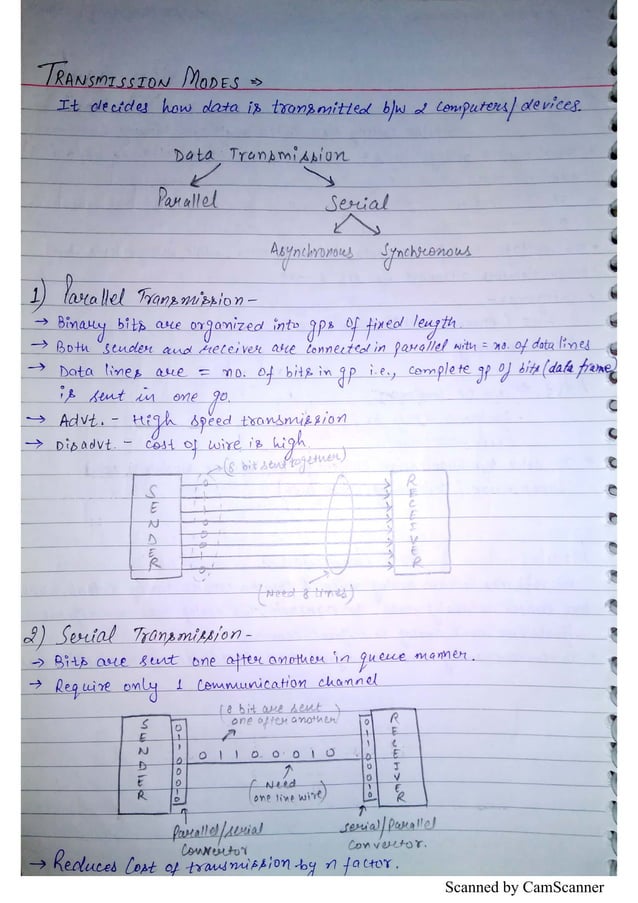 TRANSMISSION MODES ⇒
It decides how data is transmitted b/w 2 computers/devices.
Data Transmission
Parallel Serial
Asynchronous Synchronous
1) Parallel Transmission -
→ Binary bits are organized into gps of fixed length.
→ Both sender and receiver are connected in parallel with = no. of data lines
→ Data lines are = no. of bits in gp i.e., complete gp of bits (data frame)
is sent in one go.
→ Advt. - High speed transmission
→ Disadvt. - cost of wire is high.
(8 bit sent together)
SENDER
RECEIVER
(Need 8 lines)
2) Serial Transmission -
→ Bits are sent one after another in queue manner.
→ Require only 1 communication channel
(8 bit are sent
one after another)
SENDER 01100010 0 1 1 0 0 0 1 0 01100010 RECEIVER
(Need
one line wire)
Parallel/serial serial/Parallel
convertor convertor.
→ Reduces cost of transmission by n factor.
Scanned by CamScanner